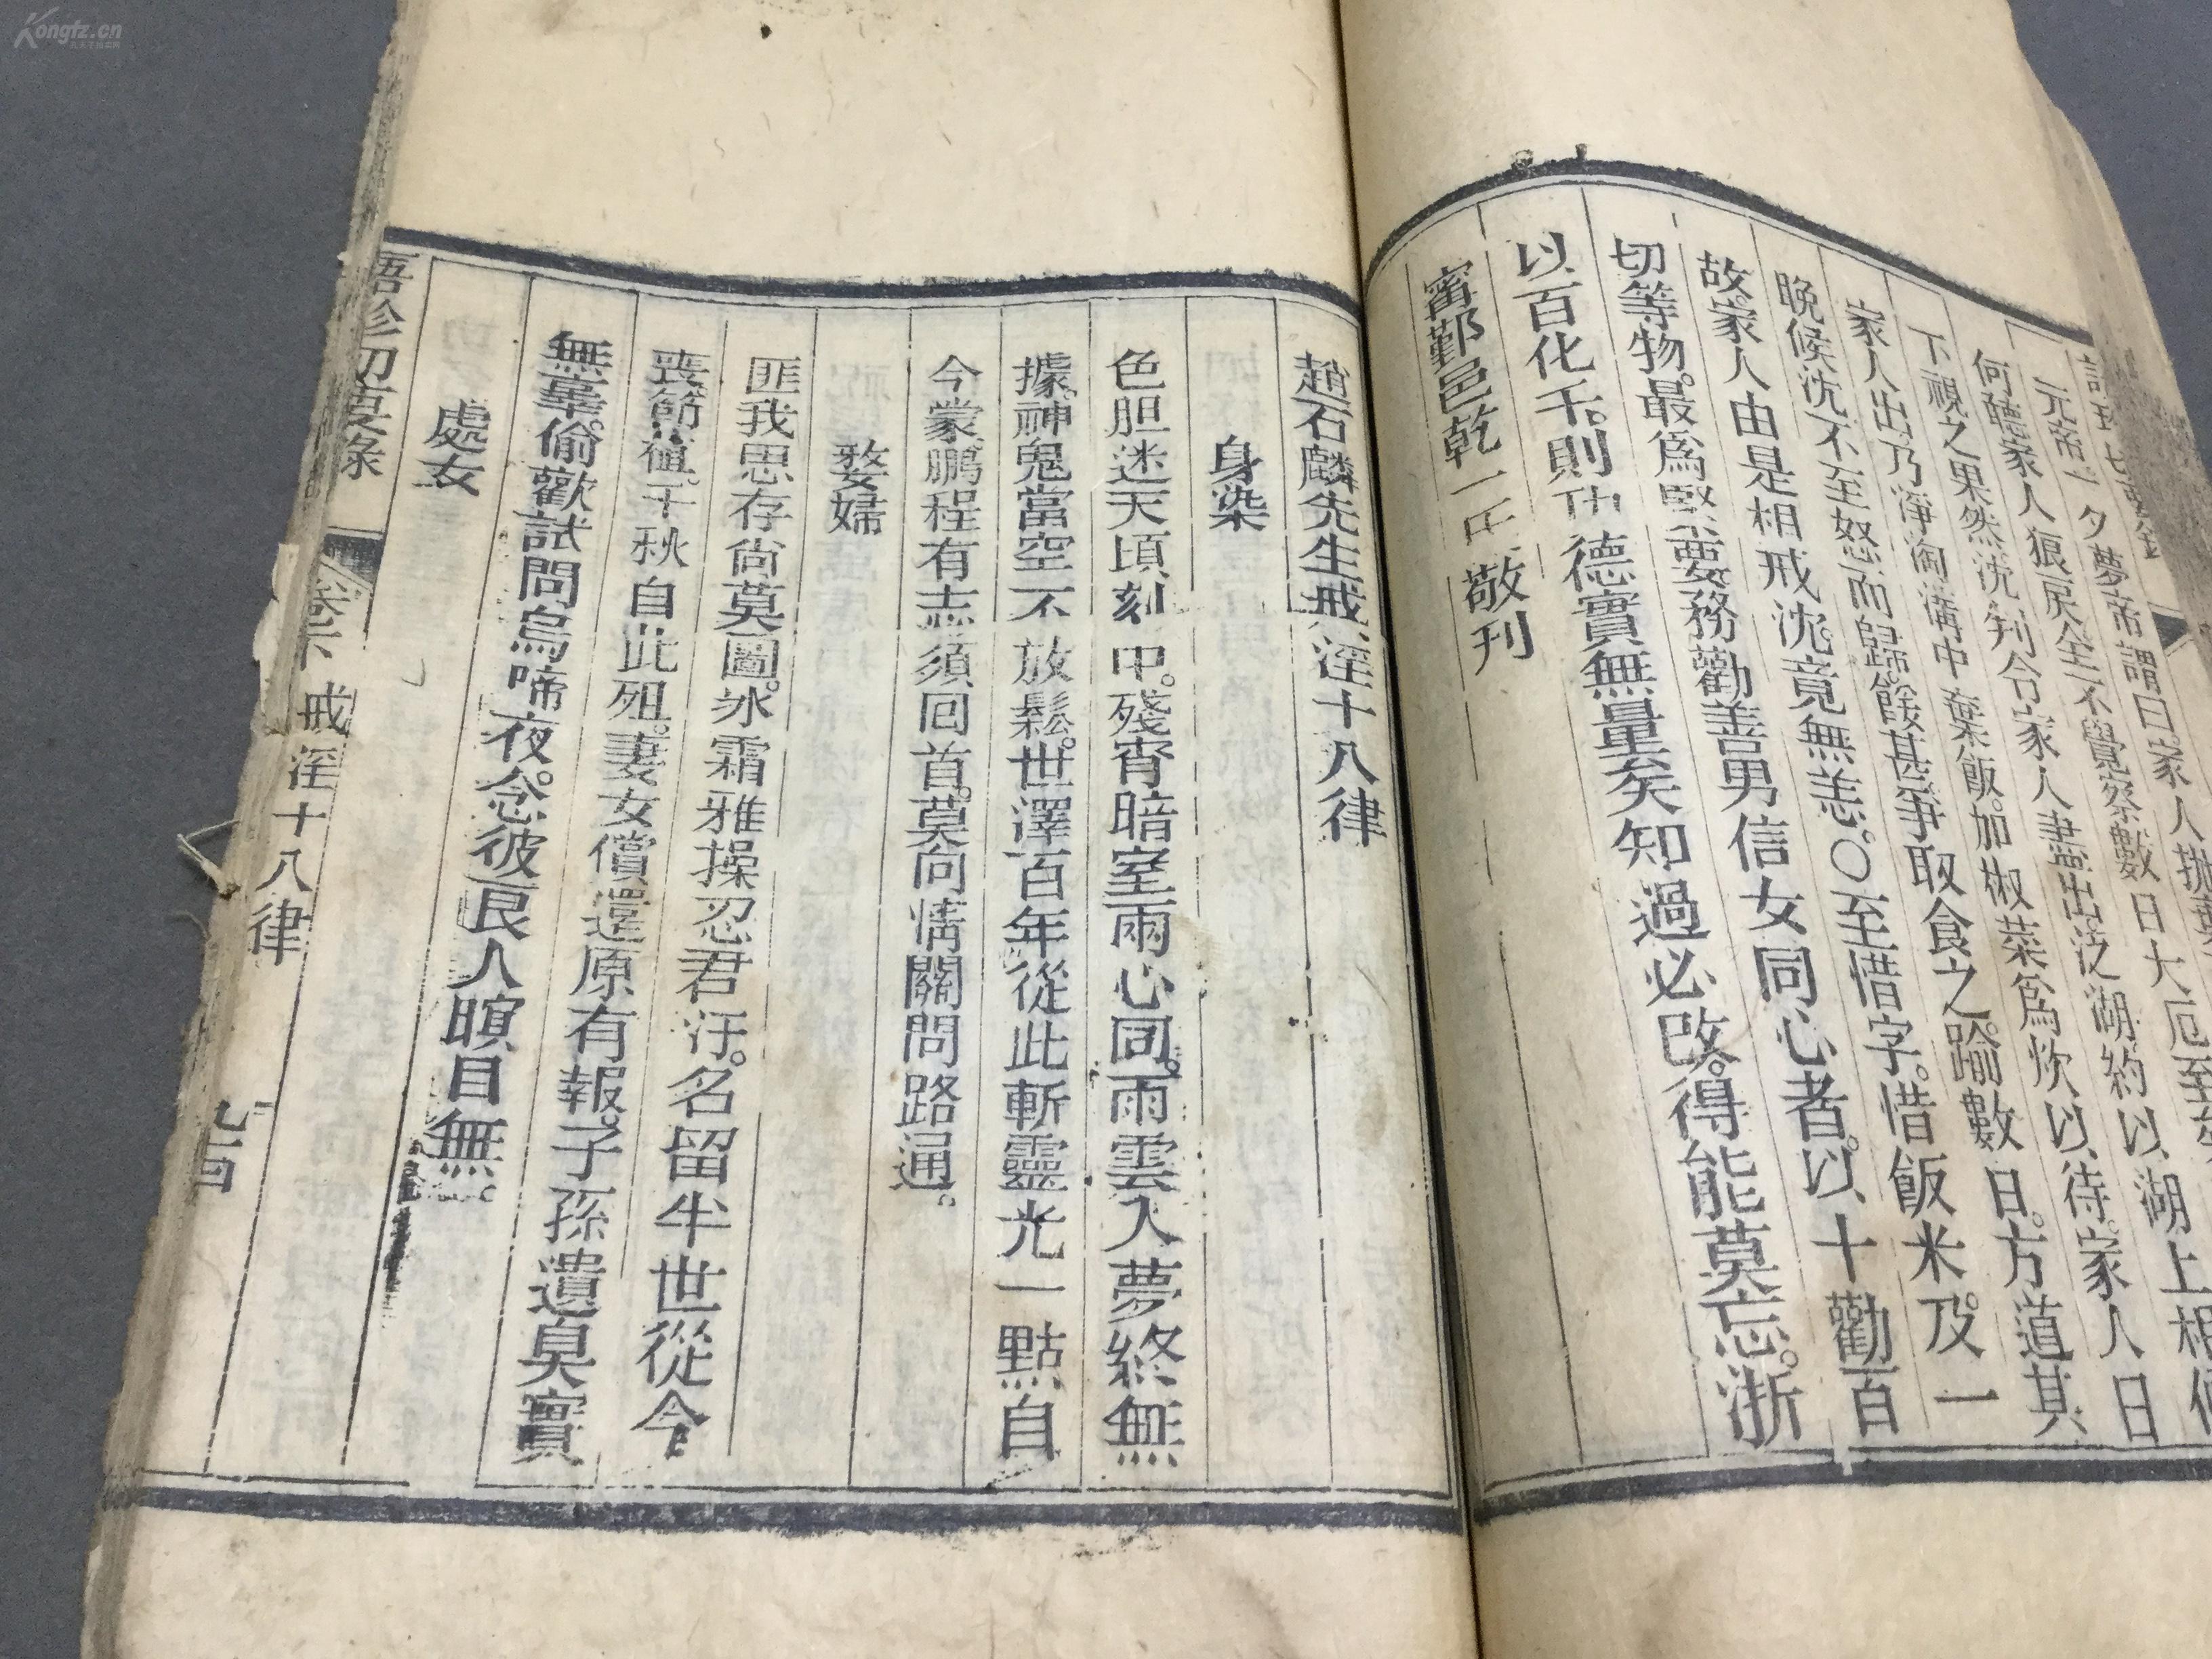 元帝一夕夢帝謂曰家人拋棄
何聽家人狼戾全不覺察數日大厄至矣
下視之果然沈判令家人盡出泛湖約以湖上相何
家人出乃淨陶溝中棄飯加椒菜爲炊以待家人日
晚候沈不至怒而歸餒甚爭取食之踰數日方道其
故家人由是相戒沈竟無恙〇至惜字惜飯米及一
切等物最爲緊要務勸善男信女同心者以十勸百
以百化千則功德實無量矣知過必改得能莫忘浙
甯鄞邑乾一氏敬刊
趙石麟先生戒淫十八律
身染
色胆迷天頃刻中殘宵暗室兩心同雨雲入夢終無
據神鬼當空不放鬆世澤百年從此斬靈光一點自
今蒙鵬程有志須回首莫向情關問路通
嫠婦
匪我思存尙莫圖冰霜雅操忍君汙名留半世從今
喪節值千秋自此殂妻女償還原有報子孫遺臭實
無辜偷歡試問烏啼夜念彼良人瞑目無
處女
卷下 戒淫十八律 九四
Kongfz.cn